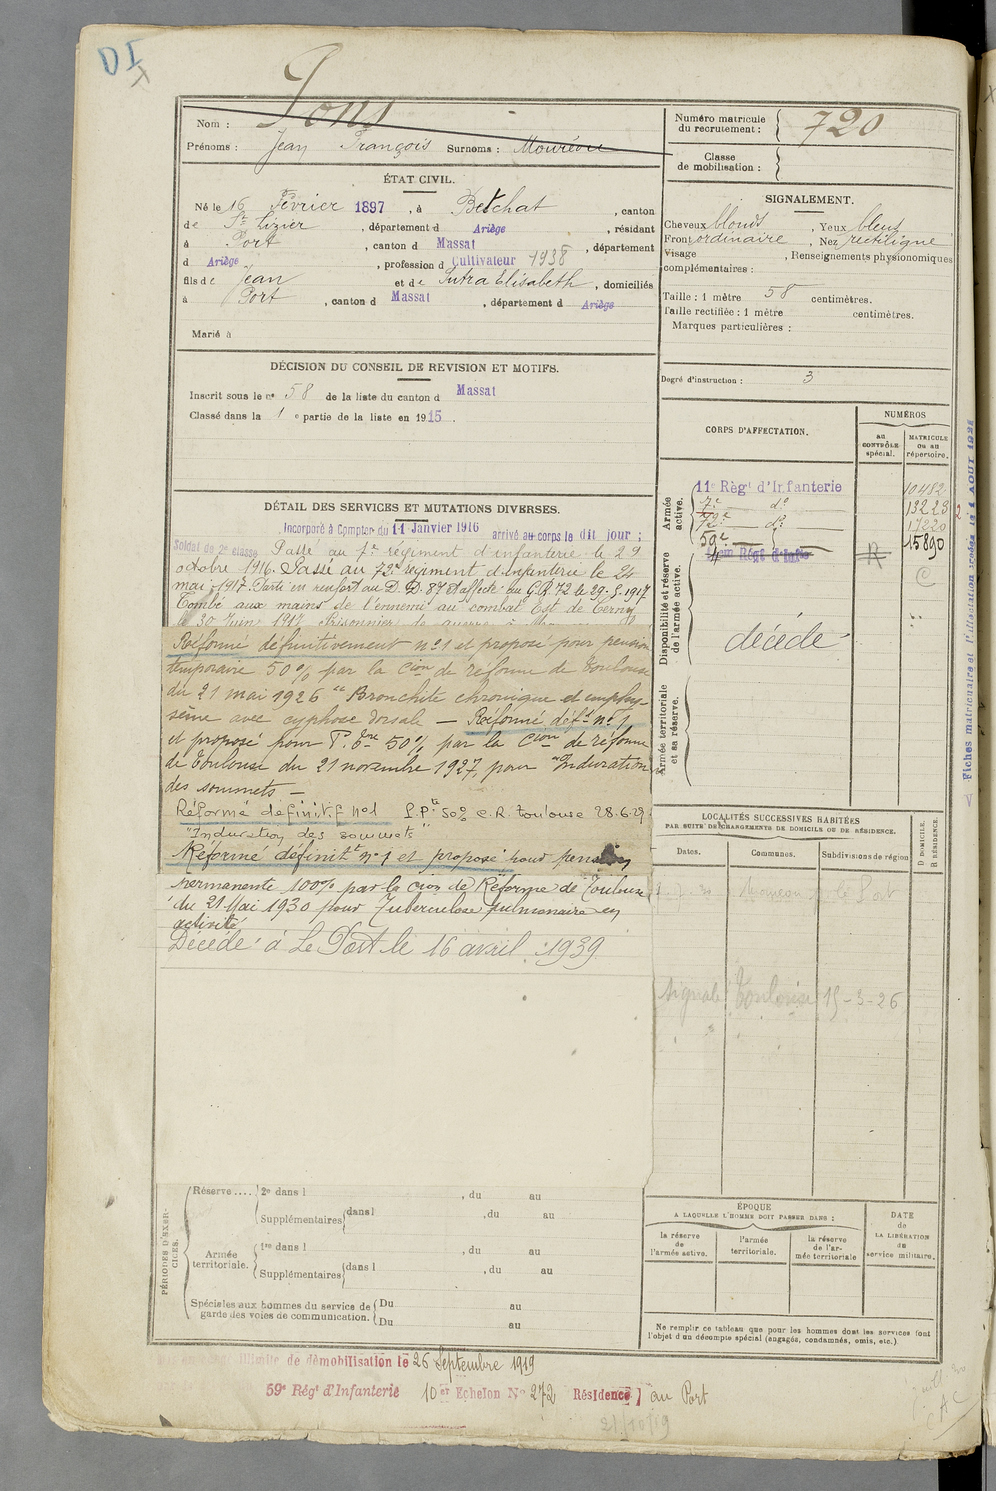 DI
Nom : Pons
Prénoms : Jean François Surnoms :
Numéro matricule du recrutement : 720
Classe de mobilisation :
ÉTAT CIVIL.
Né le 16 Février 1897, à Betchat, canton
de St Lizier, département d Ariège, résidant
à Port, canton d Massat, département
d Ariège, profession d Cultivateur 1938
fils de Jean et de Sutra Elisabeth, domiciliés
à Port, canton d Massat, département d Ariège
Marié à
SIGNALEMENT.
Cheveux blonds, Yeux bleus
Front ordinaire, Nez rectiligne
Visage , Renseignements physionomiques
complémentaires :
Taille : 1 mètre 58 centimètres.
Taille rectifiée : 1 mètre centimètres.
Marques particulières :
Degré d'instruction : 3
DÉCISION DU CONSEIL DE REVISION ET MOTIFS.
Inscrit sous le no 58 de la liste du canton d Massat
Classé dans la 1 e partie de la liste en 1915.
DÉTAIL DES SERVICES ET MUTATIONS DIVERSES.
Incorporé à Compter du 11 Janvier 1916 arrivé au corps le dit jour ;
Soldat de 2e classe Passé au 7e régiment d'infanterie le 29
octobre 1916. Passé au 72e régiment d'infanterie le 24
mai 1917. Parti en renfort au D.D. 87 et affecté au G.R. 72 le 29.5.1917
Tombé aux mains de l'ennemi au combat Est de Cerny
le 30 Juin 1917. Prisonnier de guerre à
Réformé définitivement n°1 et proposé pour pension
temporaire 50% par la Cion de réforme de Toulouse
du 21 mai 1926 "Bronchite chronique et emphy-
sème avec cyphose dorsale — Réformé déft n° 1
et proposé pour P. tre 50% par la Cion de réforme
de Toulouse du 21 novembre 1927, pour "Induration
des sommets —
Réformé définitif n°1 P.Pte 50% C.R. Toulouse 28.6.29
"Induration des sommets"
Réformé définitt n°1 et proposé pour pension
permanente 100% par la Cion de Réforme de Toulouse
du 21 Mai 1930 pour Tuberculose pulmonaire en
activité
Décédé à Le Port le 16 avril 1939
CORPS D'AFFECTATION.
NUMÉROS
au CONTRÔLE spécial.
MATRICULE ou au répertoire.
Armée active.
11e Règt d'Infanterie 10482
7e do 13223
72e do 17220
59e 15890
R
Disponibilité et réserve de l'armée active.
décédé
Armée territoriale et sa réserve.
LOCALITÉS SUCCESSIVES HABITÉES
PAR SUITE DE CHANGEMENTS DE DOMICILE OU DE RÉSIDENCE.
Dates. Communes. Subdivisions de région
D DOMICILE. R RÉSIDENCE.
le Port
Signalé Toulouse 15-3-26
PÉRIODES D'EXERCICES.
Réserve .... 2e dans l , du au
Supplémentaires dans l , du au
Armée territoriale. 1re dans l , du au
Supplémentaires dans l , du au
Spéciales aux hommes du service de garde des voies de communication. Du au
Du au
ÉPOQUE
A LAQUELLE L'HOMME DOIT PASSER DANS :
la réserve de l'armée active.
l'armée territoriale.
la réserve de l'armée territoriale
DATE de LA LIBÉRATION du service militaire.
Ne remplir ce tableau que pour les hommes dont les services font
l'objet d'un décompte spécial (engagés, condamnés, omis, etc.).
illimité de démobilisation le 26 Septembre 1919
59e Règt d'Infanterie 10 er Echelon No 272 Résidence au Port